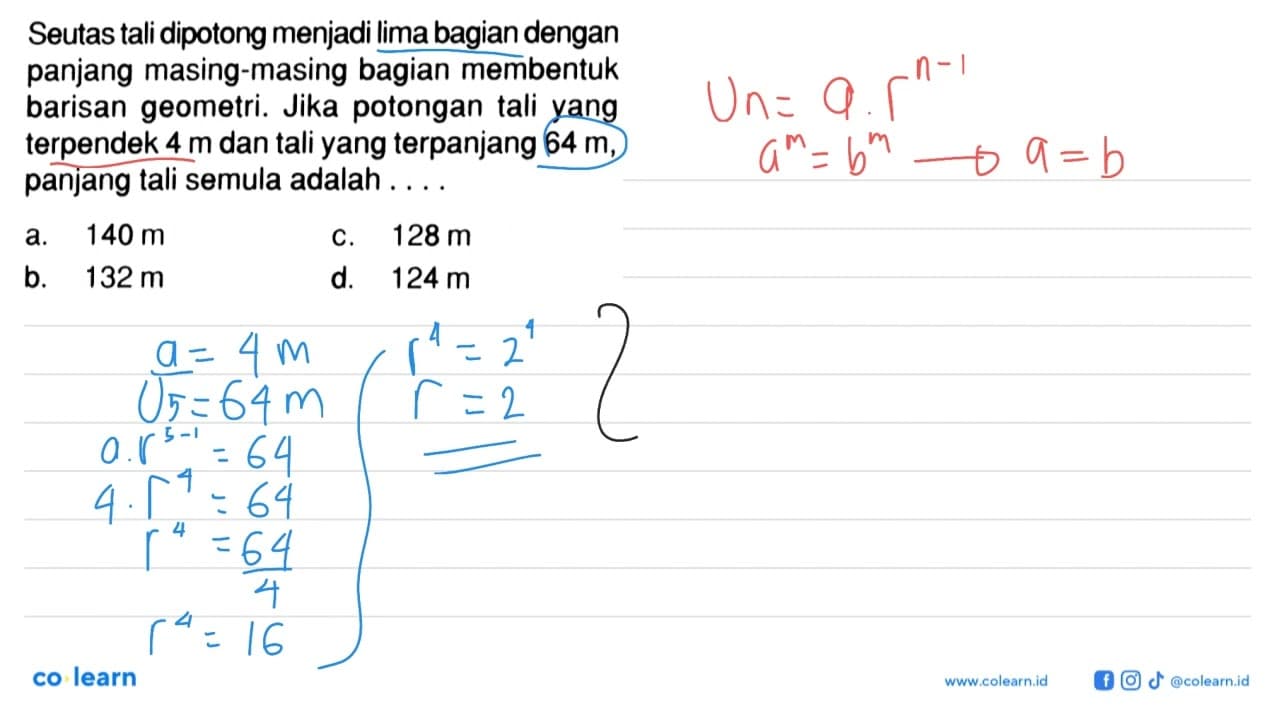 Seutas tali dipotong menjadi lima bagian dengan
panjang masing-masing bagian membentuk
barisan geometri. Jika potongan tali yang
terpendek 4 m dan tali yang terpanjang 64 m,
panjang tali semula adalah . . . .
a. 140 m c. 128 m
b. 132 m d. 124 m
Un = a . r^{n-1}
a^m = b^m → a = b
a = 4 m
U5 = 64 m
a . r^{5-1} = 64
4 . r^4 = 64
r^4 = 64/4
r^4 = 16
r^4 = 2^4
r = 2
co learn
www.colearn.id @colearn.id